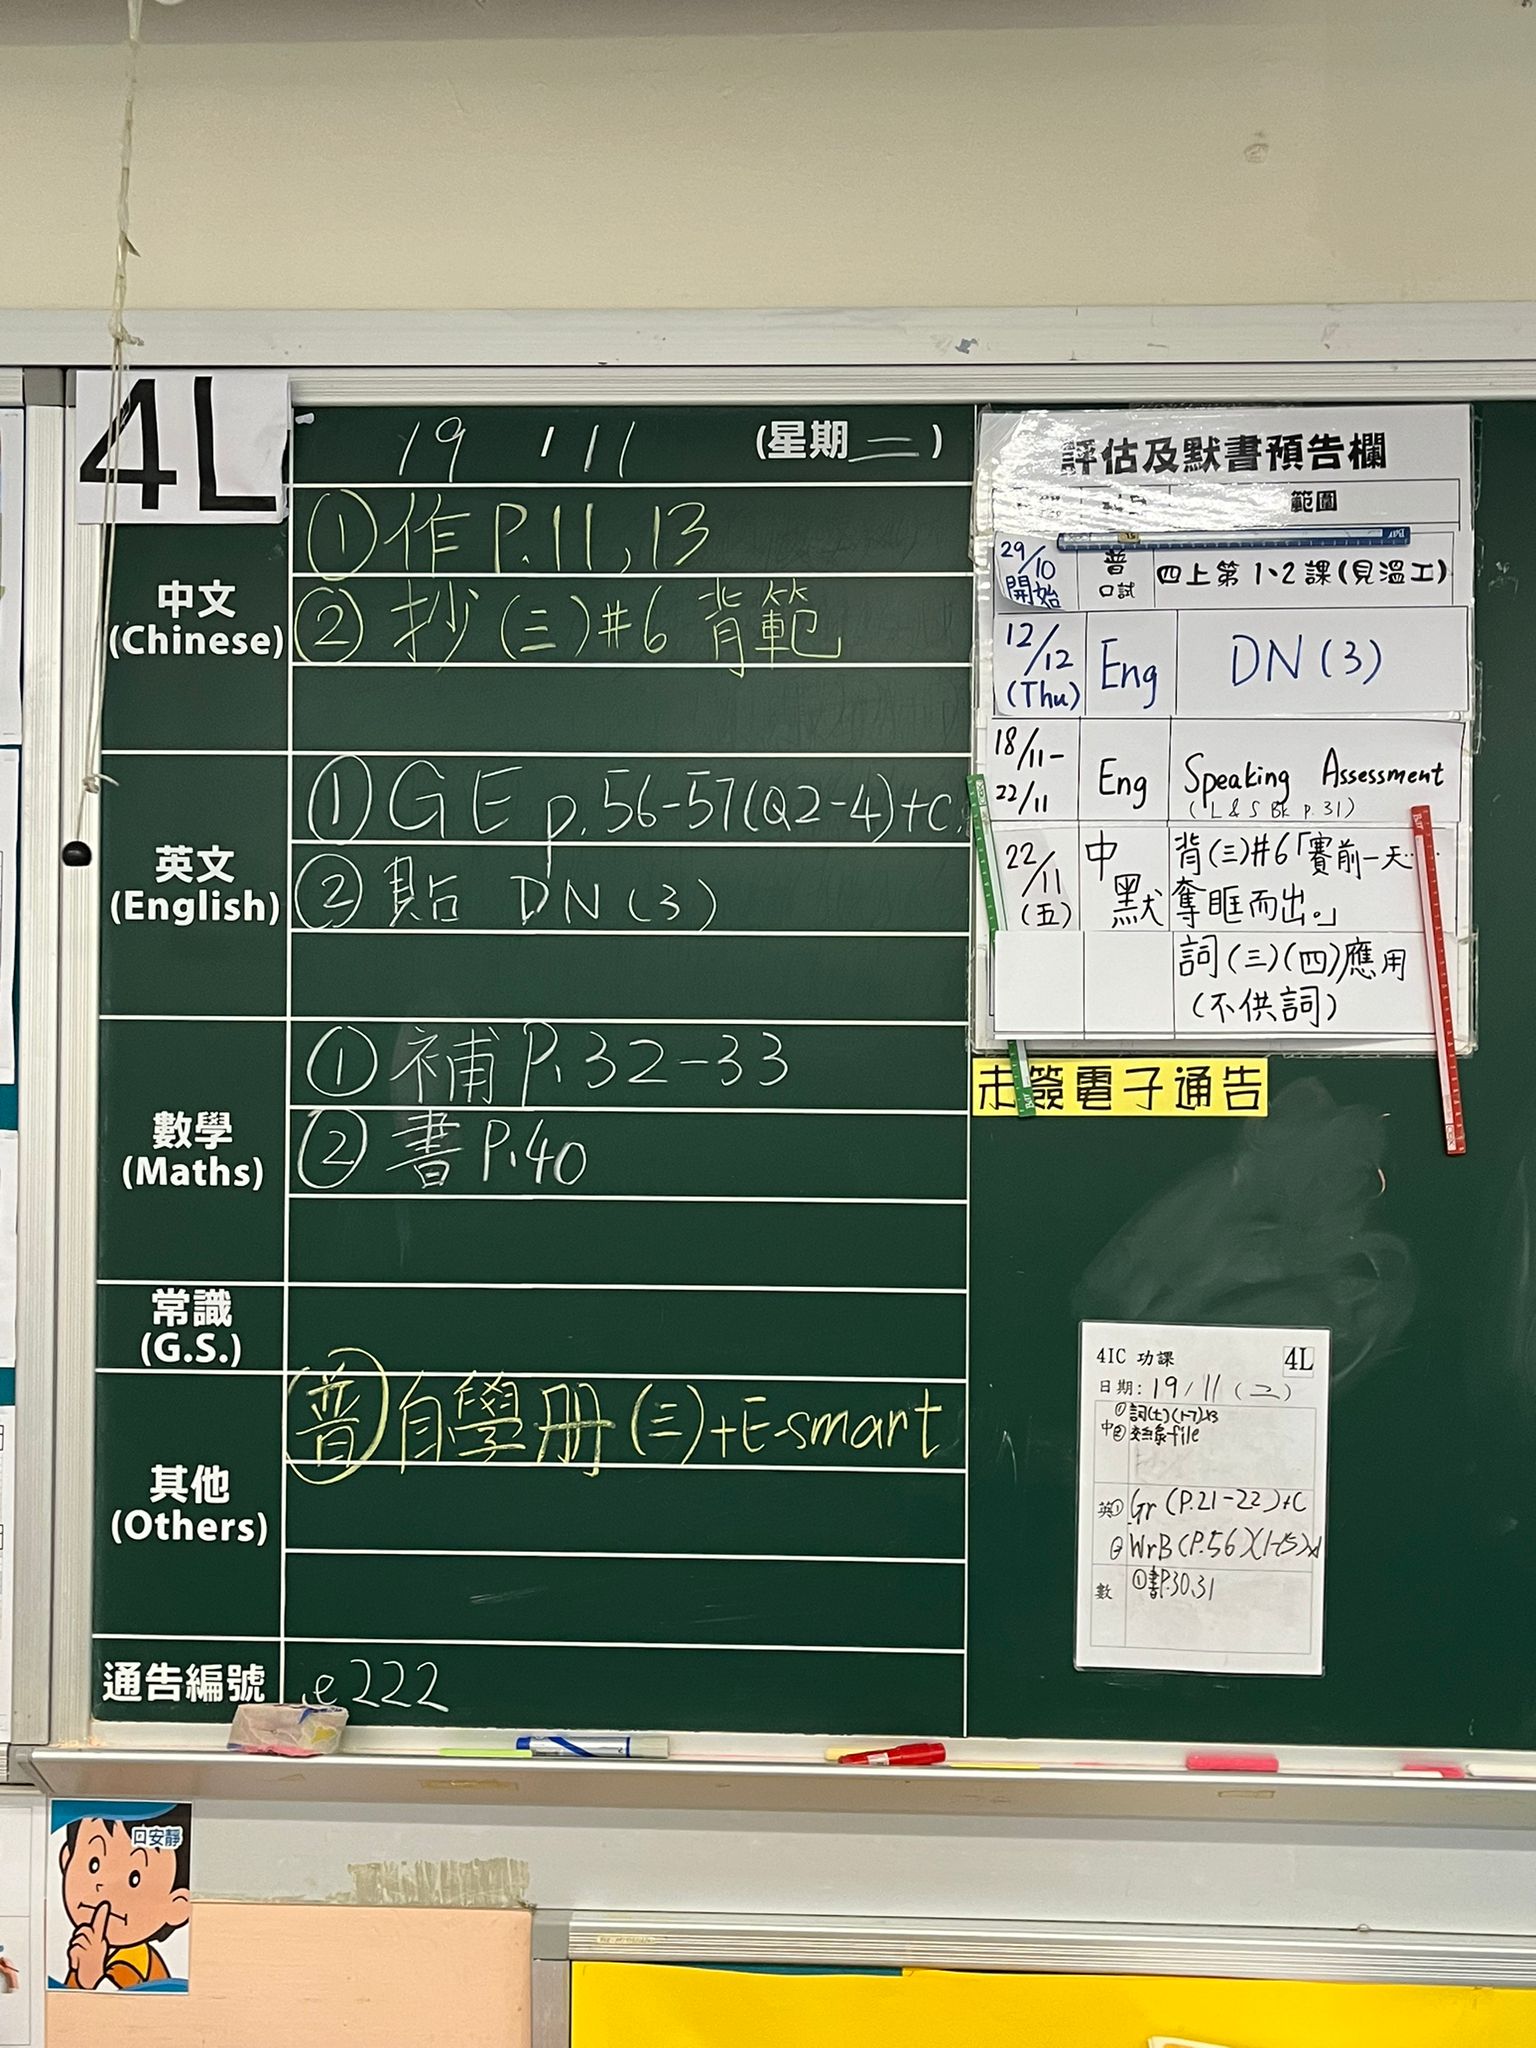 4L
19 / 11 (星期二)
中文
(Chinese)
① 作 P.11, 13
② 抄(三)#6 背範
英文
(English)
① GE p.56-57(Q2-4)+c.
② 貼 DN (3)
數學
(Maths)
① 補 P.32-33
② 書 P.40
常識
(G.S.)
其他
(Others)
普 自學冊(三)+E-smart
通告編號
e222
評估及默書預告欄
範圍
29/10 開始 普 口試 四上第1、2課(見溫工)
12/12 (Thu) Eng DN (3)
18/11- 22/11 Eng Speaking Assessment
(L & S Bk p.31)
22/11 (五) 中默 背(三)#6「賽前一天……
奪眶而出。」
詞(三)(四)應用
(不供詞)
未簽電子通告
4IC 功課 4L
日期: 19/11 (二)
中 ①
② file
英 ① Gr (P.21-22)+C
② WrB (P.56)
數 ① 書P.30,31
安靜